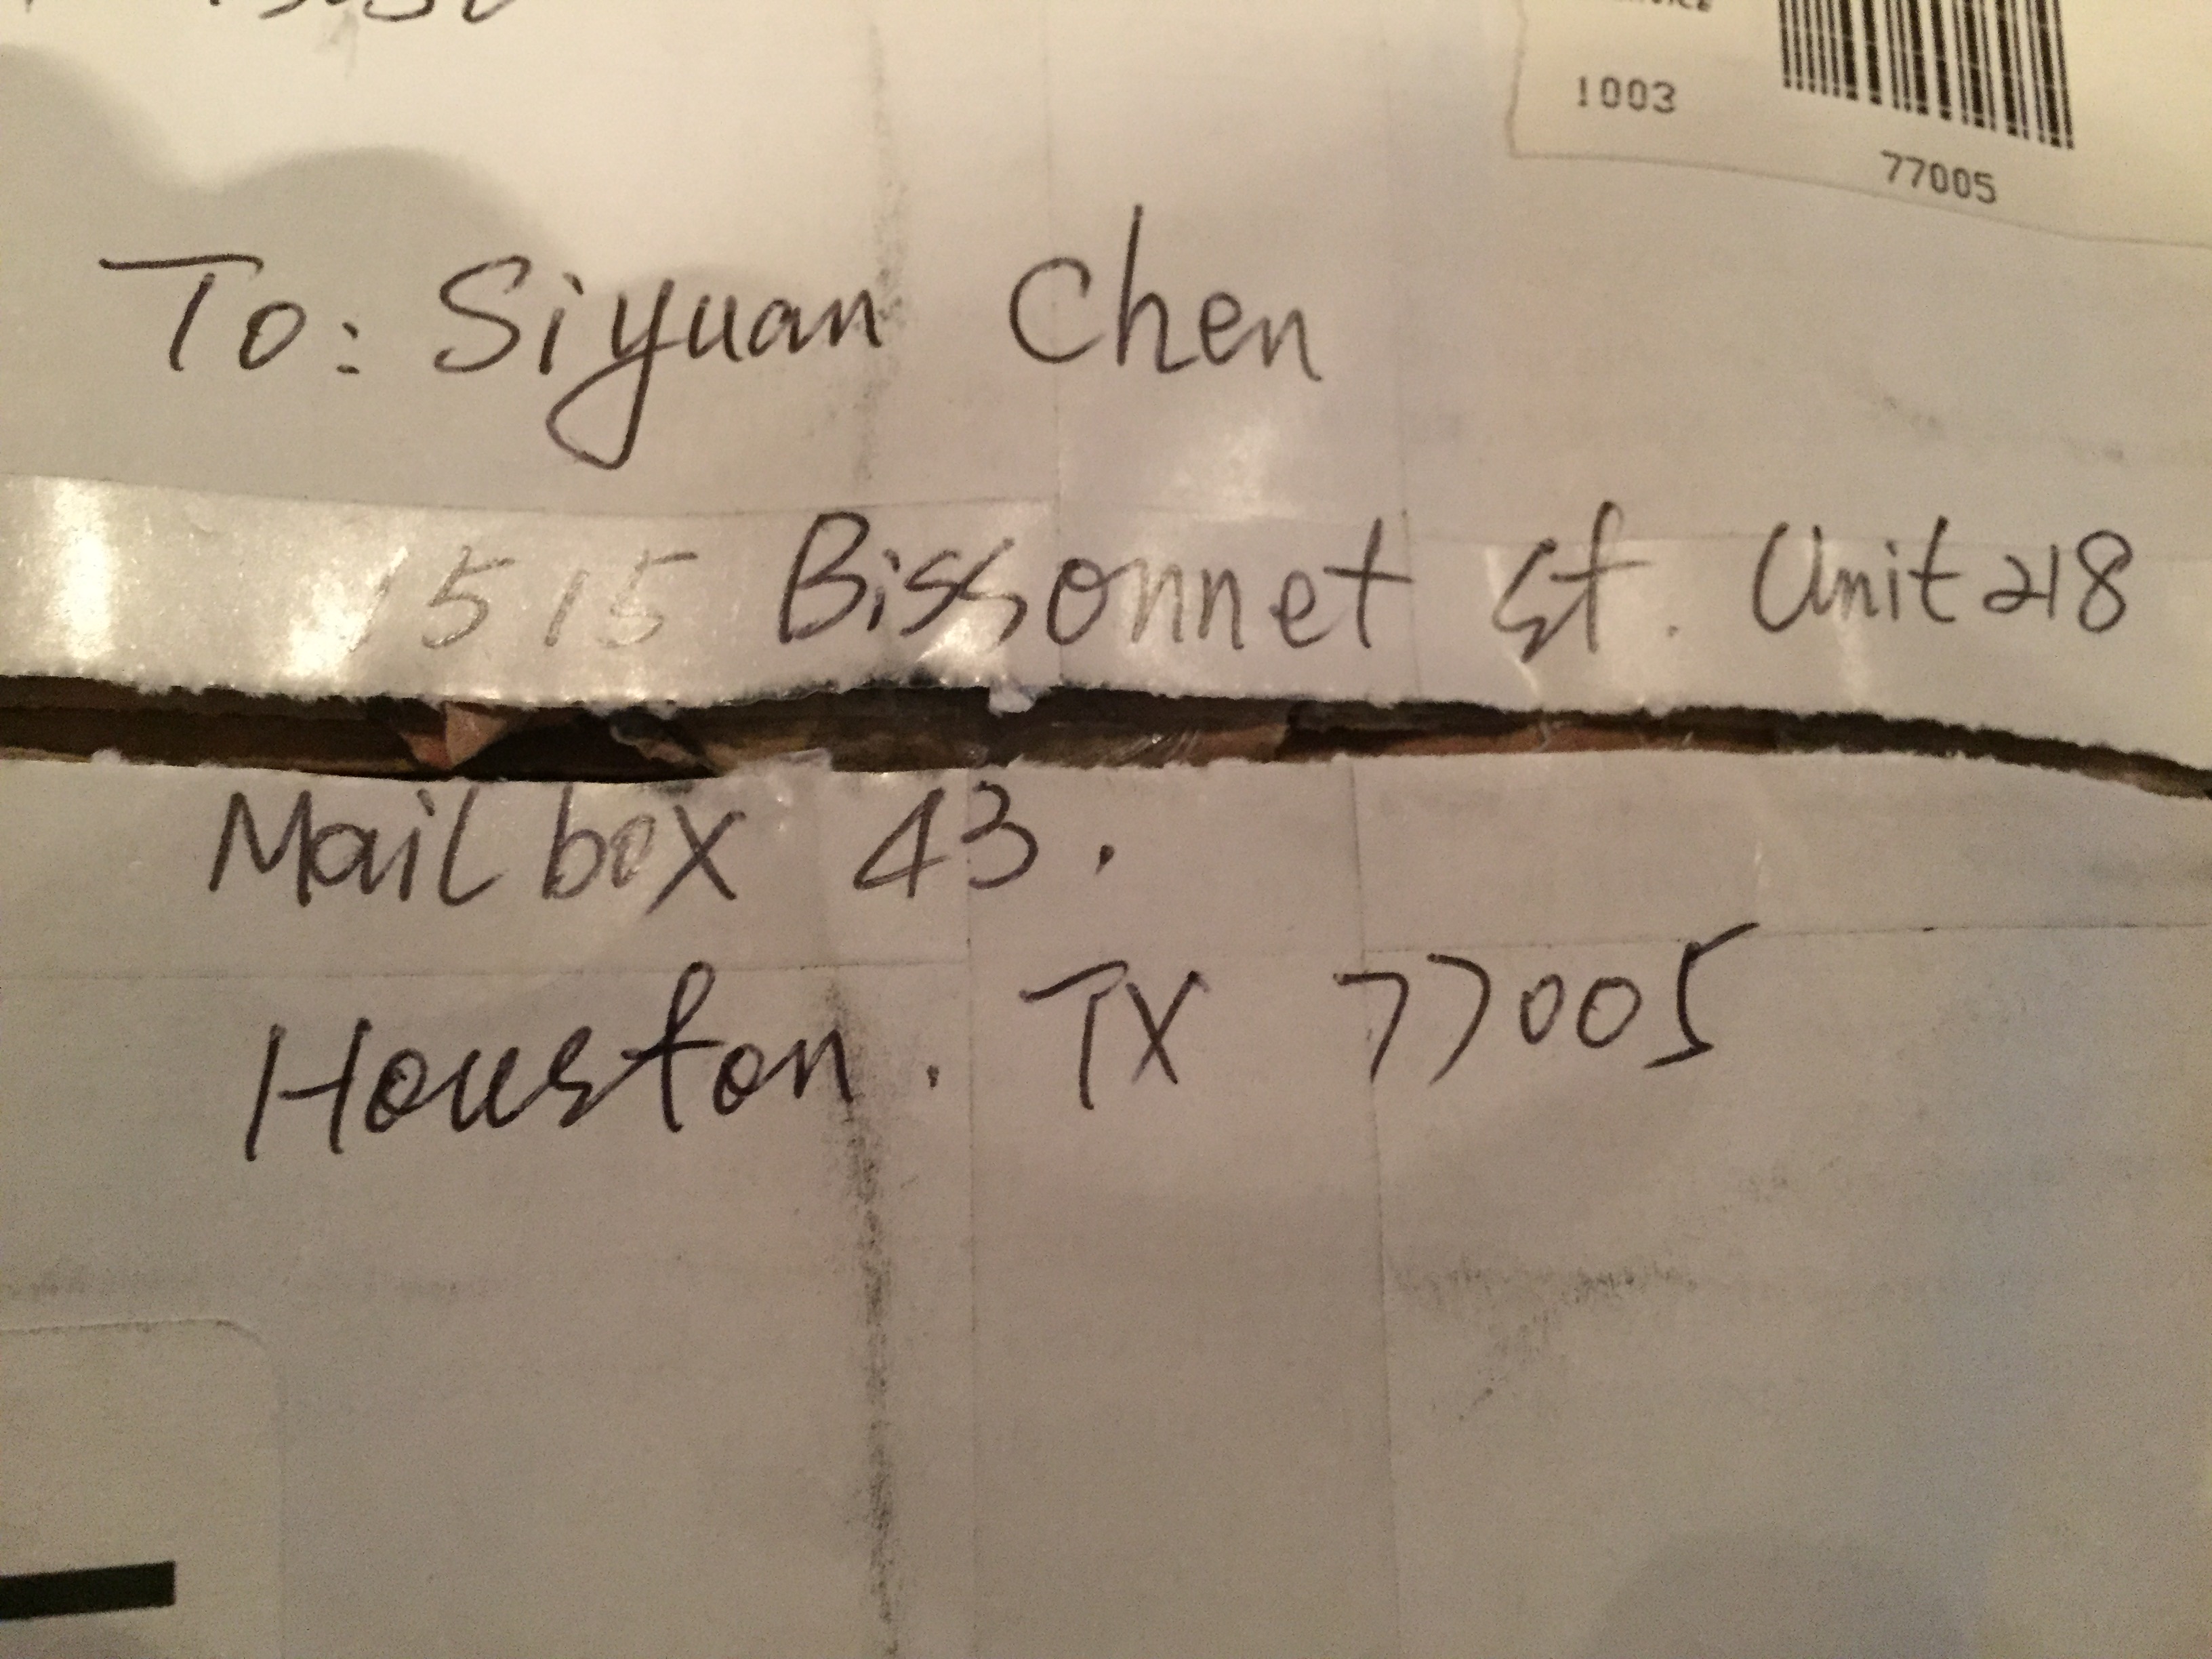 1003
77005
To: Siyuan Chen
1515 Bissonnet St. Unit 218
Mailbox 43.
Houston. TX 77005